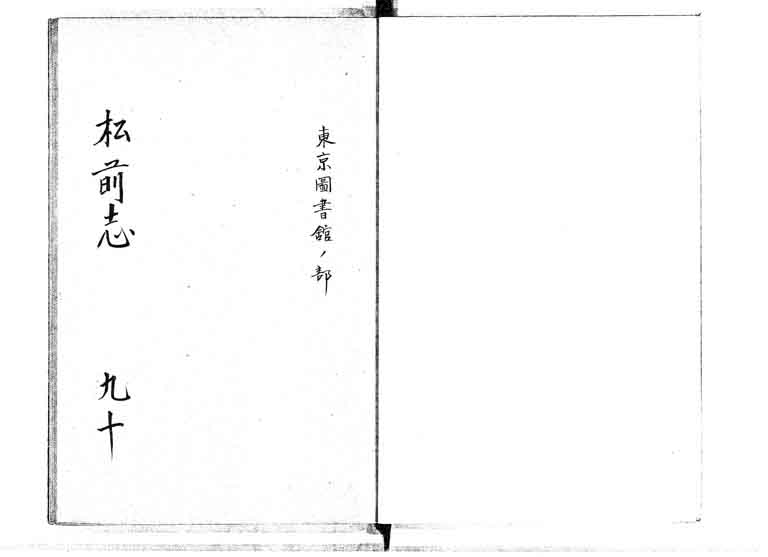 東京圖書館ノ部
松前志 九十